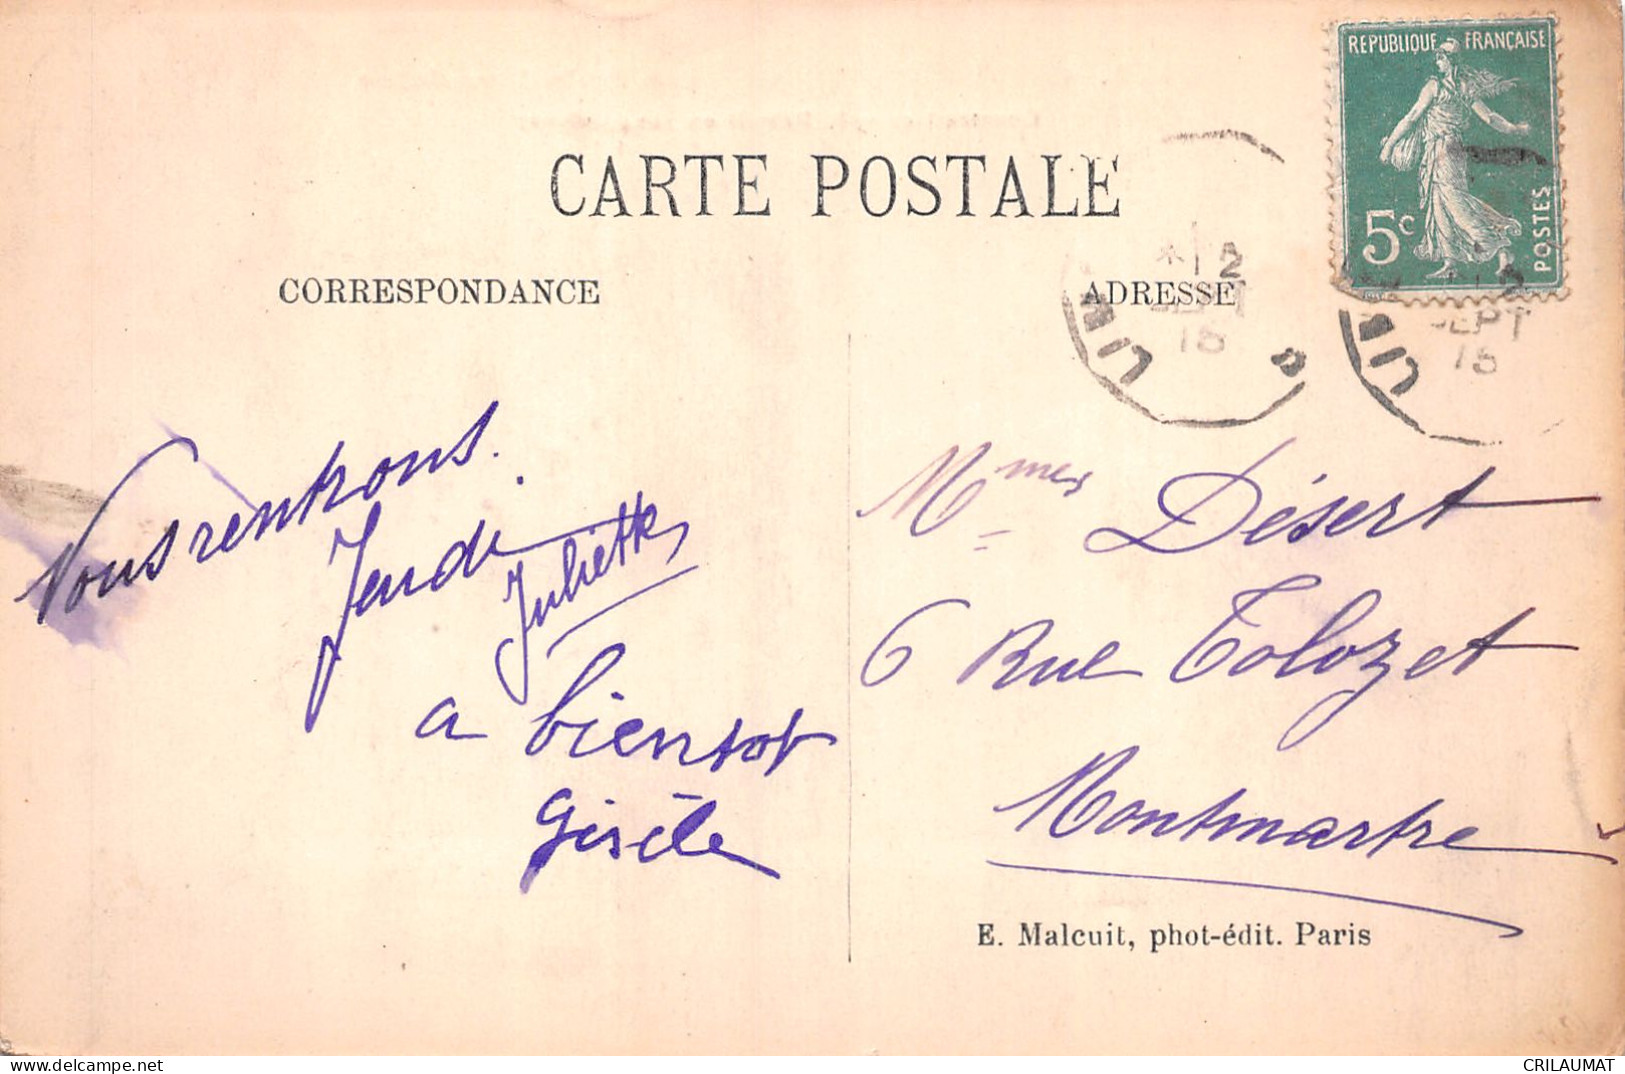 REPUBLIQUE FRANÇAISE
5c
POSTES
CARTE POSTALE
CORRESPONDANCE
ADRESSE
* 2
SEPT
15
Nous rentrons
Jeudi.
Juliette
a bientot
Gisèle
Mmes Désert
6 Rue Tolozet
Montmartre
E. Malcuit, phot-édit. Paris
CRILAUMAT